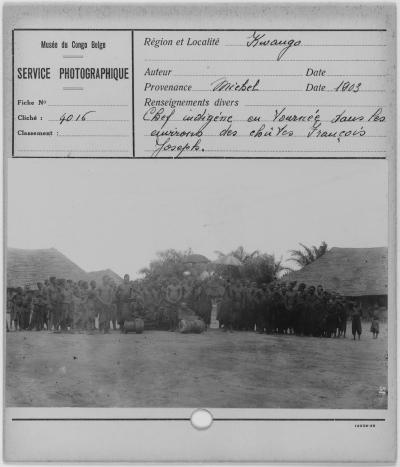 Musée du Congo Belge
SERVICE PHOTOGRAPHIQUE
Fiche No
Cliché : 4016
Classement :
Région et Localité Kwango
Auteur Date
Provenance Michel Date 1903
Renseignements divers
Chef indigène en tournée dans les
environs des chûtes François
Joseph.